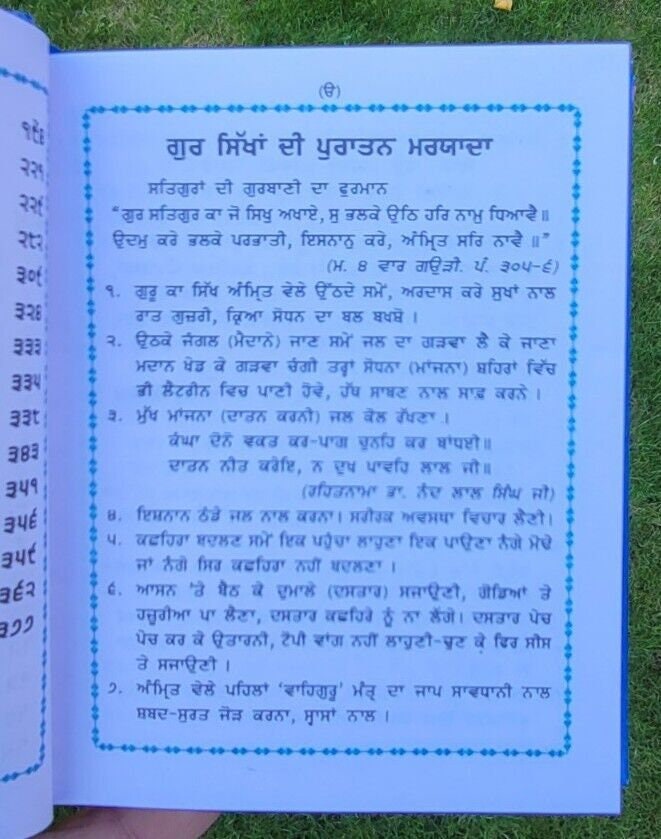 ੧੯੪
੨੨੧
੨੨੬
੨੮੨
੩੦੯
੩੨੪
੩੩੩
੩੩੫
੩੩੮
੩੪੩
੩੫੧
੩੫੬
੩੫੯
੩੬੨
੩੭੭
(ੳ)
ਗੁਰ ਸਿੱਖਾਂ ਦੀ ਪੁਰਾਤਨ ਮਰਯਾਦਾ
ਸਤਿਗੁਰਾਂ ਦੀ ਗੁਰਬਾਣੀ ਦਾ ਫੁਰਮਾਨ
“ਗੁਰ ਸਤਿਗੁਰ ਕਾ ਜੋ ਸਿਖੁ ਅਖਾਏ, ਸੁ ਭਲਕੇ ਉਠਿ ਹਰਿ ਨਾਮੁ ਧਿਆਵੈ॥
ਉਦਮੁ ਕਰੇ ਭਲਕੇ ਪਰਭਾਤੀ, ਇਸਨਾਨੁ ਕਰੇ, ਅੰਮ੍ਰਿਤ ਸਰਿ ਨਾਵੈ ॥”
(ਮ. ੪ ਵਾਰ ਗਉੜੀ. ਪੰ. ੩੦੫-੬)
੧. ਗੁਰੂ ਕਾ ਸਿੱਖ ਅੰਮ੍ਰਿਤ ਵੇਲੇ ਉੱਠਦੇ ਸਮੇਂ, ਅਰਦਾਸ ਕਰੇ ਸੁਖਾਂ ਨਾਲ
ਰਾਤ ਗੁਜ਼ਰੀ, ਕ੍ਰਿਆ ਸੋਧਨ ਦਾ ਬਲ ਬਖਸ਼ੋ ।
੨. ਉਠਕੇ ਜੰਗਲ (ਮੈਦਾਨੇ) ਜਾਣ ਸਮੇਂ ਜਲ ਦਾ ਗੜਵਾ ਲੈ ਕੇ ਜਾਣਾ
ਮਦਾਨ ਖੇਡ ਕੇ ਗੜਵਾ ਚੰਗੀ ਤਰ੍ਹਾਂ ਸੋਧਨਾ (ਮਾਂਜਨਾ) ਸ਼ਹਿਰਾਂ ਵਿੱਚ
ਭੀ ਲੈਟਰੀਨ ਵਿਚ ਪਾਣੀ ਹੋਵੇ, ਹੱਥ ਸਾਬਣ ਨਾਲ ਸਾਫ਼ ਕਰਨੇ ।
੩. ਮੁੱਖ ਮਾਂਜਨਾ (ਦਾਤਨ ਕਰਨੀ) ਜਲ ਕੋਲ ਰੱਖਣਾ ।
ਕੰਘਾ ਦੋਨੋ ਵਕਤ ਕਰ-ਪਾਗ ਚੁਨਹਿ ਕਰ ਬਾਂਧਈ॥
ਦਾਤਨ ਨੀਤ ਕਰੇਇ, ਨ ਦੁਖ ਪਾਵਹਿ ਲਾਲ ਜੀ॥
(ਰਹਿਤਨਾਮਾ ਭਾ. ਨੰਦ ਲਾਲ ਸਿੰਘ ਜੀ)
੪. ਇਸ਼ਨਾਨ ਠੰਡੇ ਜਲ ਨਾਲ ਕਰਨਾ। ਸਰੀਰਕ ਅਵਸਥਾ ਵਿਚਾਰ ਲੈਣੀ।
੫. ਕਛਹਿਰਾ ਬਦਲਣ ਸਮੇਂ ਇਕ ਪਹੁੰਚਾ ਲਾਹੁਣਾ ਇਕ ਪਾਉਣਾ ਨੰਗੇ ਮੋਢੇ
ਜਾਂ ਨੰਗੇ ਸਿਰ ਕਛਹਿਰਾ ਨਹੀਂ ਬਦਲਣਾ ।
੬. ਆਸਨ 'ਤੇ ਬੈਠ ਕੇ ਦੁਮਾਲੇ (ਦਸਤਾਰ) ਸਜਾਉਣੀ, ਗੋਡਿਆਂ ਤੇ
ਹਜ਼ੂਰੀਆ ਪਾ ਲੈਣਾ, ਦਸਤਾਰ ਕਛਹਿਰੇ ਨੂੰ ਨਾ ਲੱਗੇ। ਦਸਤਾਰ ਪੇਚ
ਪੇਚ ਕਰ ਕੇ ਉਤਾਰਨੀ, ਟੋਪੀ ਵਾਂਗ ਨਹੀਂ ਲਾਹੁਣੀ-ਚੁਣ ਕੇ ਫਿਰ ਸੀਸ
ਤੇ ਸਜਾਉਣੀ ।
੭. ਅੰਮ੍ਰਿਤ ਵੇਲੇ ਪਹਿਲਾਂ ‘ਵਾਹਿਗੁਰੂ’ ਮੰਤ੍ਰ ਦਾ ਜਾਪ ਸਾਵਧਾਨੀ ਨਾਲ
ਸ਼ਬਦ-ਸੁਰਤ ਜੋੜ ਕਰਨਾ, ਸ੍ਵਾਸਾਂ ਨਾਲ ।